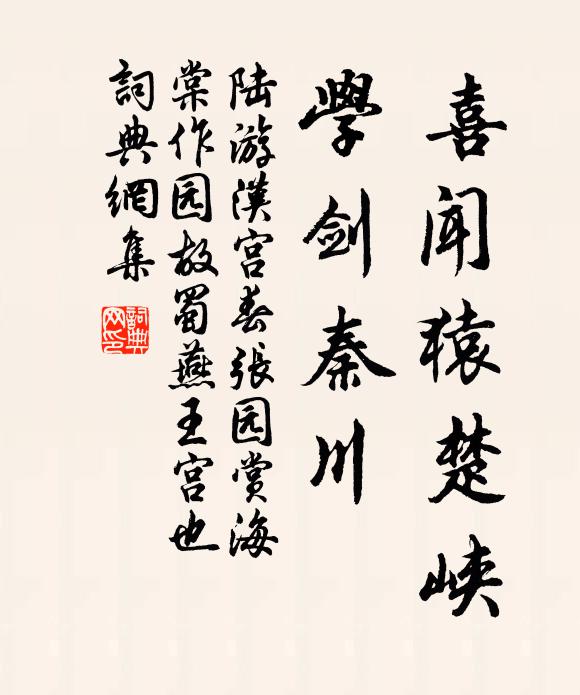 喜闻猿楚峡
學剑秦川
陆游漢宫春張园赏海
棠作园故蜀燕王宫也
詞典網集
詞典
网印